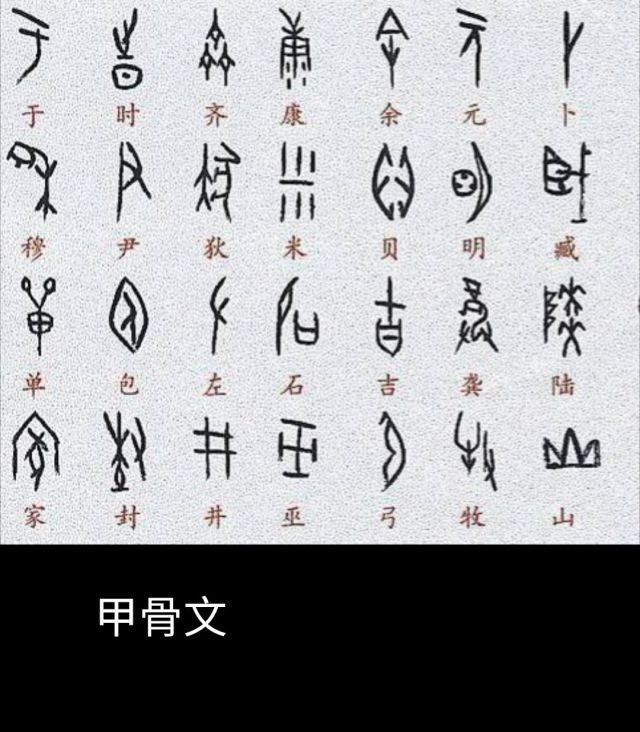 于 时 齐 康 余 元 卜
穆 尹 狄 米 贝 明 臧
单 包 左 石 吉 龚 陆
家 封 井 巫 弓 牧 山
甲骨文